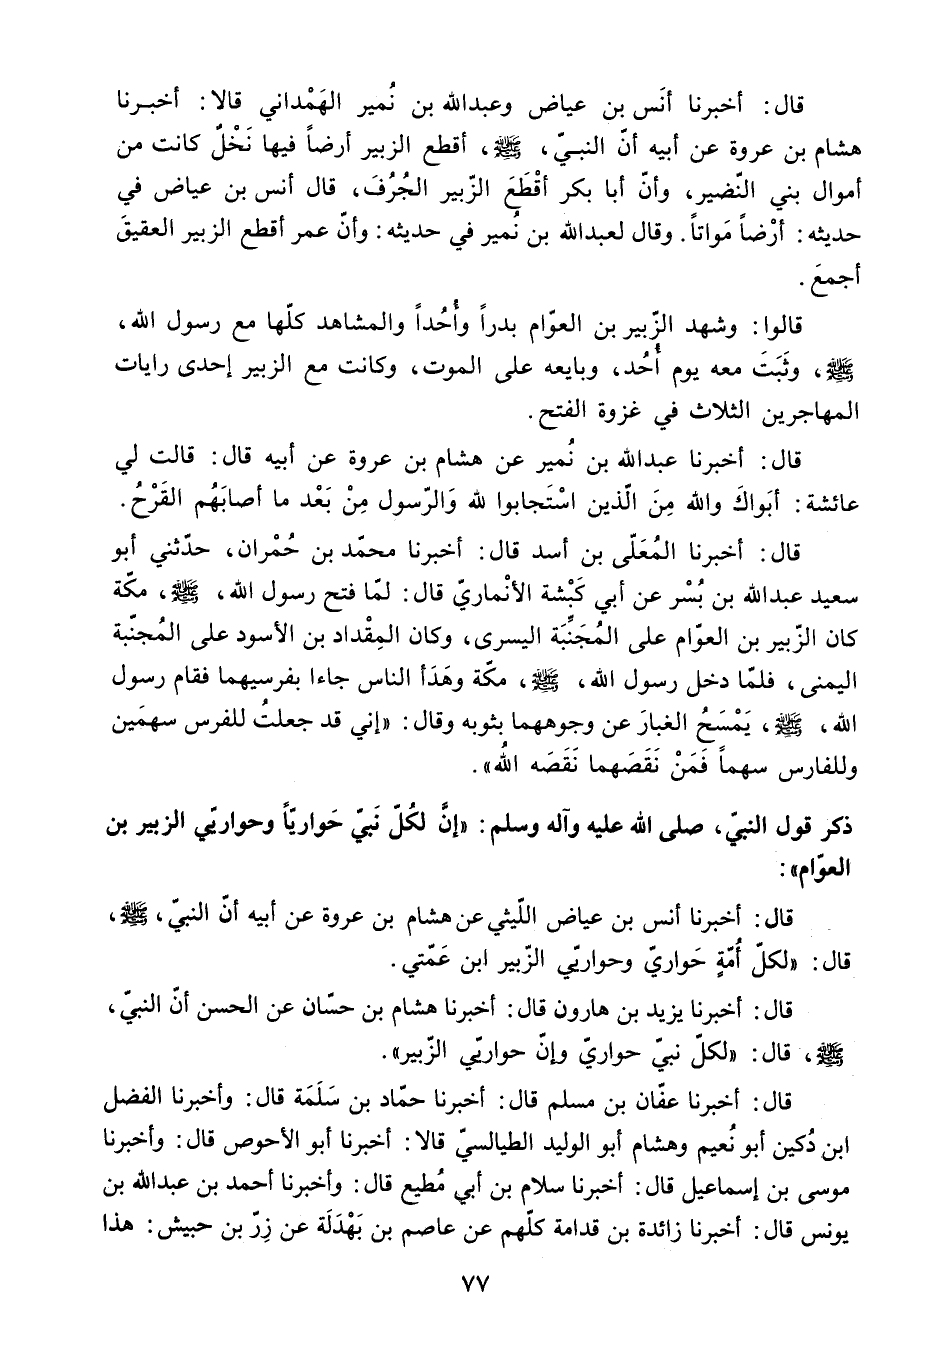 قال: أخبرنا أنَس بن عياض وعبدالله بن نُمير الهَمْداني قالا: أخبـرنا
هشام بن عروة عن أبيه أنّ النبـيّ، ﷺ، أقطع الزبير أرضاً فيها نَخْلٌ كانت من
أموال بني النّضير، وأنّ أبا بكر أقْطَعَ الزّبير الجُرُفَ، قال أنس بن عياض في
حديثه: أرْضاً مَواتاً. وقال لعبدالله بن نُمير في حديثه: وأنّ عمر أقطع الزبير العقيقَ
أجمعَ.
قالوا: وشهد الزّبير بن العوّام بدراً وأُحُداً والمشاهد كلّها مع رسول الله،
ﷺ، وثَبَتَ معه يوم أُحُد، وبايعه على الموت، وكانت مع الزبير إحدى رايات
المهاجرين الثلاث في غزوة الفتح.
قال: أخبرنا عبدالله بن نُمير عن هشام بن عروة عن أبيه قال: قالت لي
عائشة: أبَواكَ والله مِنَ الّذين اسْتَجابوا لله وَالرّسول مِنْ بَعْد ما أصابَهُم القَرْحُ.
قال: أخبرنا المُعَلّى بن أسد قال: أخبرنا محمّد بن حُمْران، حدّثني أبو
سعيد عبدالله بن بُسْر عن أبي كَبْشة الأنْماريّ قال: لمّا فتح رسول الله، ﷺ، مكّة
كان الزّبير بن العوّام على المُجَنِّبَة اليسرى، وكان المِقْداد بن الأسود على المُجنّبة
اليمنى، فلمّا دخل رسول الله، ﷺ، مكة وهَدَأ الناس جاءا بفرسيهما فقام رسول
الله، ﷺ، يَمْسَحُ الغبارَ عن وجوههما بثوبه وقال: «إني قد جعلتُ للفرس سهمَين
وللفارس سهماً فَمَنْ نَقَصَهما نَقَصَه اللهُ».
ذكر قول النبيّ، صلى الله عليه وآله وسلم: «إنَّ لكُلّ نَبيّ حَواريّاً وحواريّي الزبير بن
العوّام»:
قال: أخبرنا أنس بن عياض اللّيثي عن هشام بن عروة عن أبيه أنّ النبيّ، ﷺ،
قال: «لكلّ أُمّةٍ حَواريّ وحواريّي الزّبير ابن عَمّتي.
قال: أخبرنا يزيد بن هارون قال: أخبرنا هشام بن حسّان عن الحسن أنّ النبيّ،
ﷺ، قال: «لكلّ نبيّ حواريّ وإنّ حواريّي الزّبير».
قال: أخبرنا عفّان بن مسلم قال: أخبرنا حمّاد بن سَلَمَة قال: وأخبرنا الفضل
ابن دُكين أبو نُعيم وهشام أبو الوليد الطيالسيّ قالا: أخبرنا أبو الأحوص قال: وأخبرنا
موسى بن إسماعيل قال: أخبرنا سلام بن أبي مُطيع قال: وأخبرنا أحمد بن عبدالله بن
يونس قال: أخبرنا زائدة بن قدامة كلّهم عن عاصم بن بَهْدَلَة عن زِرّ بن حبيش: هذا
٧٧